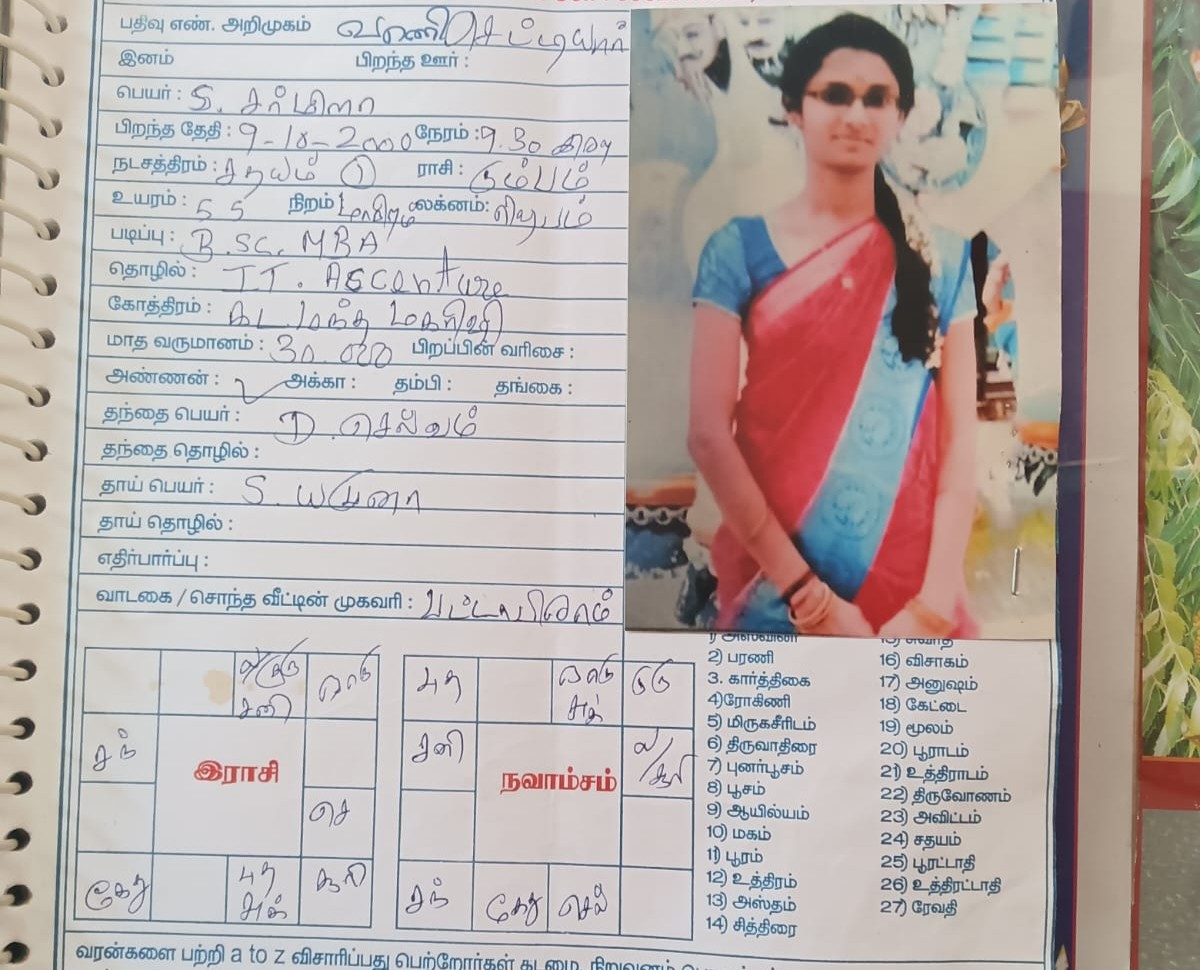 பதிவு எண். அறிமுகம் வாணி செட்டியார்
இனம் பிறந்த ஊர் :
பெயர் : S. சர்மிளா
பிறந்த தேதி : 9-10-2000 நேரம் : 9.30 இரவு
நட்சத்திரம் : சதயம் ① ராசி : கும்பம்
உயரம் : 5 5 நிறம் : மாநிறம் லக்னம்: ரிஷபம்
படிப்பு : B.SC. MBA
தொழில் : I T. Ascenture
கோத்திரம் : மகரிஷி
மாத வருமானம் : 30.000 பிறப்பின் வரிசை :
அண்ணன் : ✓ அக்கா : தம்பி : தங்கை :
தந்தை பெயர் : D. செல்வம்
தந்தை தொழில் :
தாய் பெயர் : S. யமுனா
தாய் தொழில் :
எதிர்பார்ப்பு :
வாடகை / சொந்த வீட்டின் முகவரி : பட்டாபிராம்
ல/குரு ராகு
சனி
சந்
இராசி
செ
கேது புத சூரி
சுக்
புத ராகு குரு
சுக்
சனி ல/சூரி
நவாம்சம்
சந் கேது செவ்
1) அஸ்வினி
2) பரணி
3. கார்த்திகை
4)ரோகிணி
5) மிருகசீரிடம்
6) திருவாதிரை
7) புனர்பூசம்
8) பூசம்
9) ஆயில்யம்
10) மகம்
11) பூரம்
12) உத்திரம்
13) அஸ்தம்
14) சித்திரை
15) சுவாதி
16) விசாகம்
17) அனுஷம்
18) கேட்டை
19) மூலம்
20) பூராடம்
21) உத்திராடம்
22) திருவோணம்
23) அவிட்டம்
24) சதயம்
25) பூரட்டாதி
26) உத்திரட்டாதி
27) ரேவதி
வரன்களை பற்றி a to z விசாரிப்பது பெற்றோர்கள் கடமை. நிறுவனம்